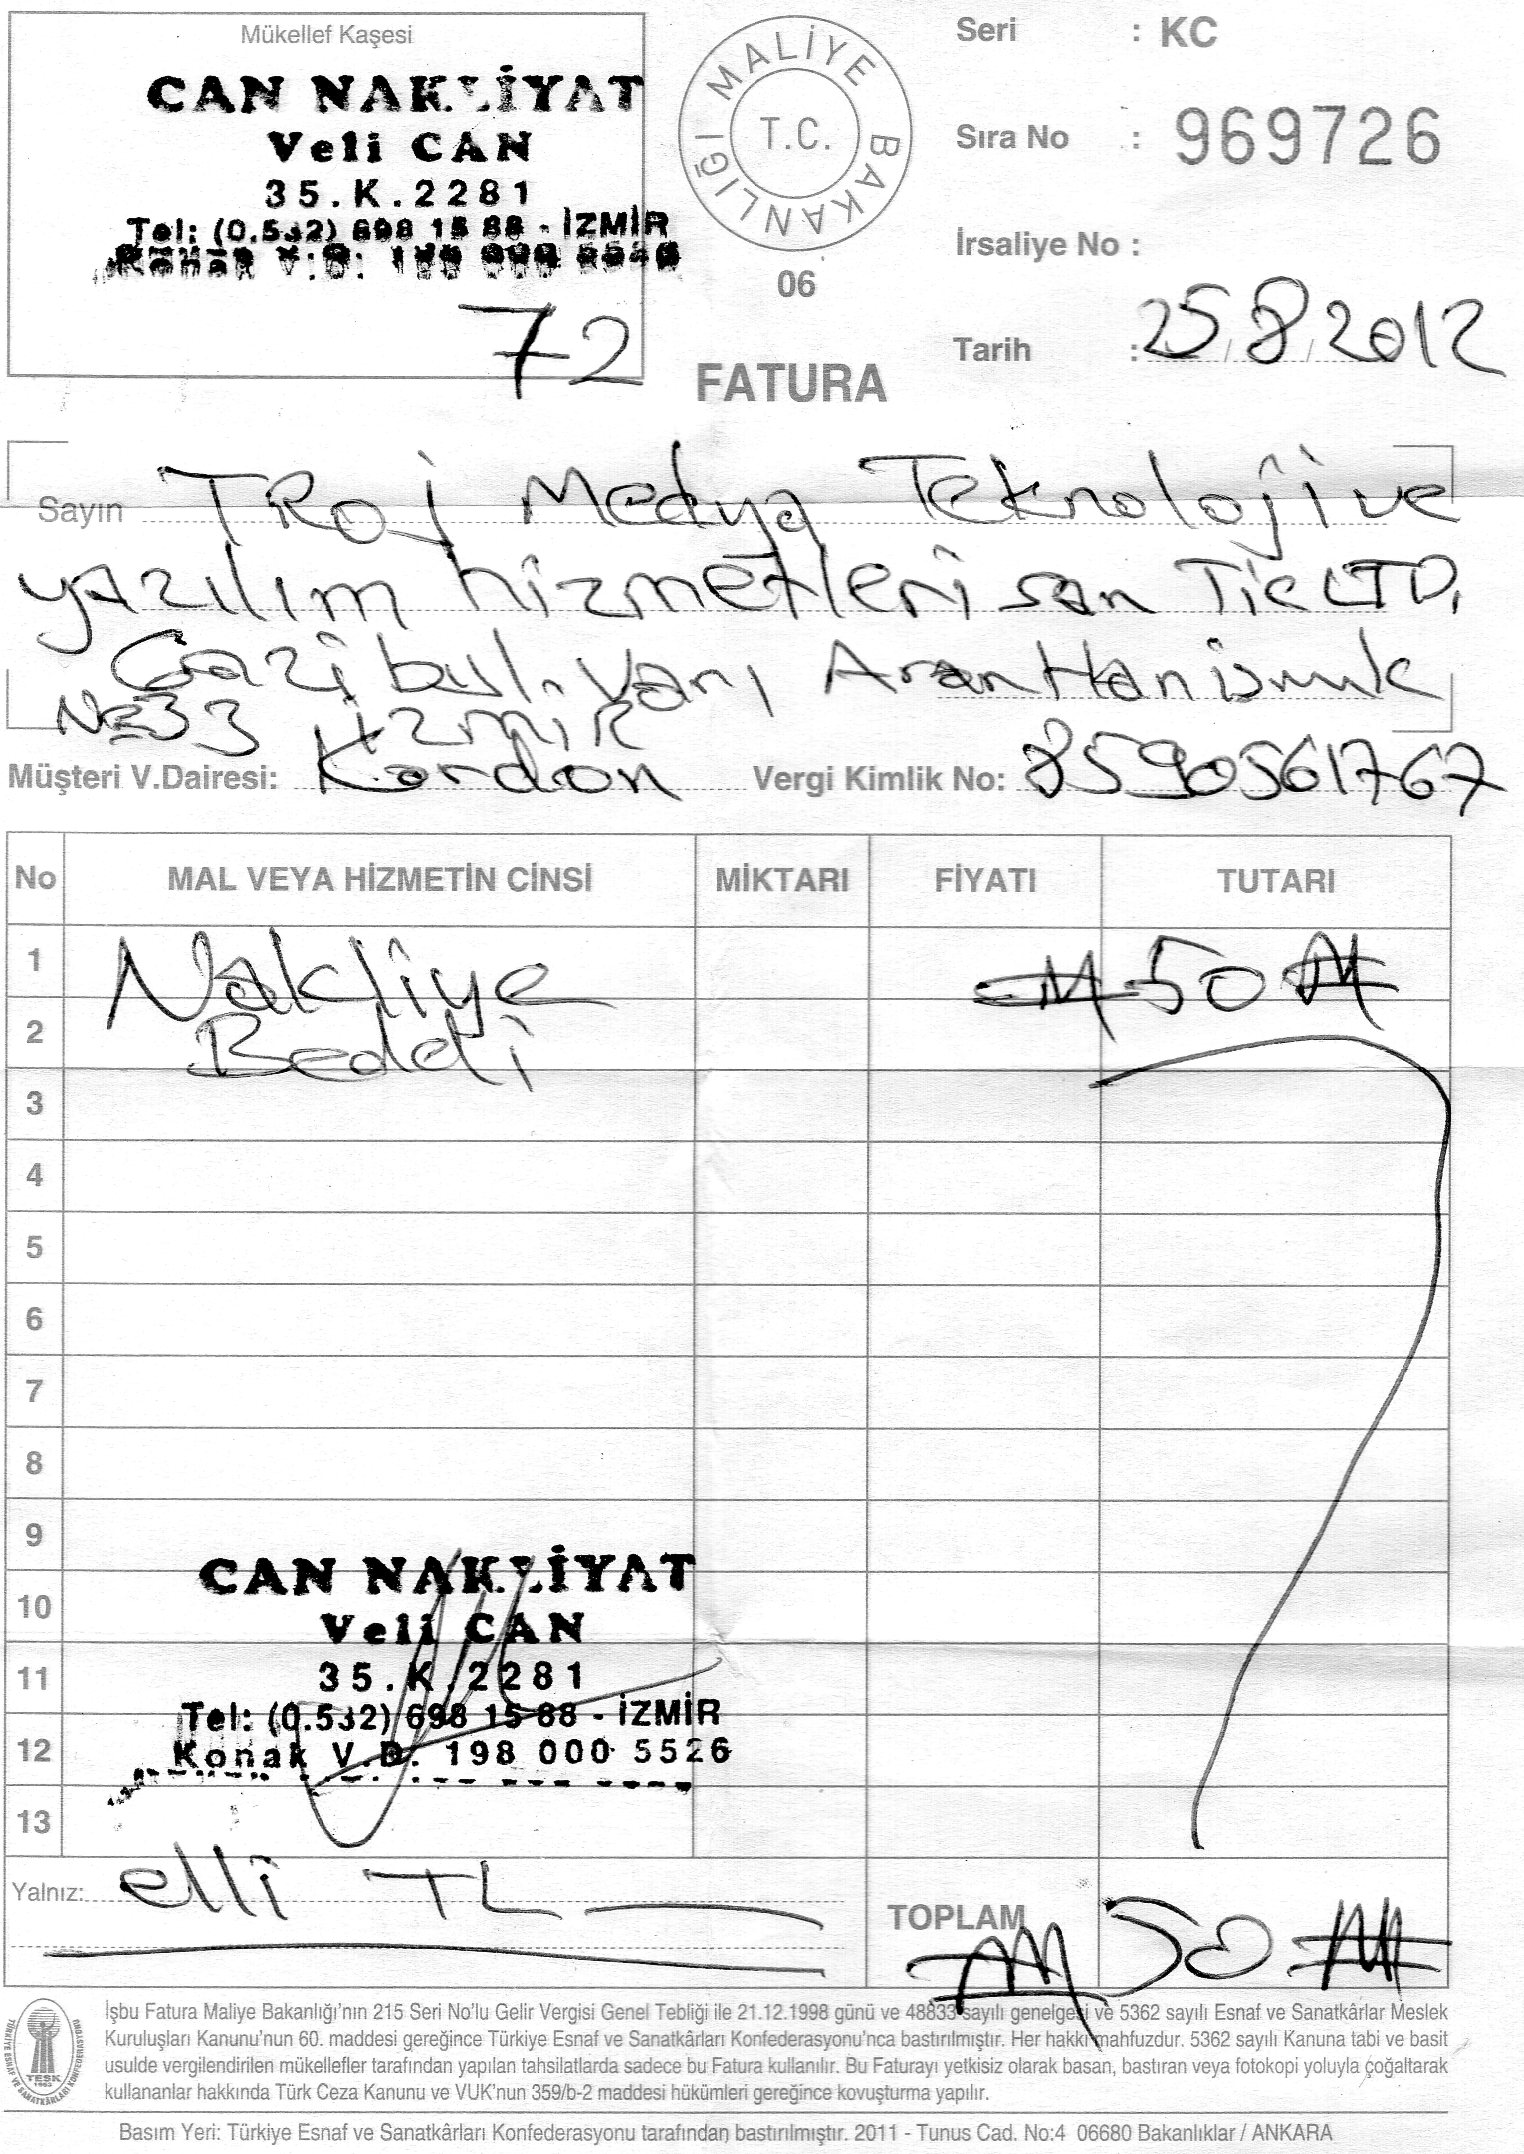 Mükellef Kaşesi
CAN NAKLİYAT
Veli CAN
35.K.2281
Tel: (0.532) 698 15 88 - İZMİR
Konak V.D: 198 000 5526
72
T.C.
MALİYE BAKANLIĞI
06
FATURA
Seri : KC
Sıra No : 969726
İrsaliye No :
Tarih : 25/8/2012
Sayın TROJ Medya Teknoloji ve
yazılım hizmetleri san Tic LTD.
Gazi bulvarı Aran Han
No 33 İzmir
Müşteri V.Dairesi: Kordon Vergi Kimlik No: 8590561767
No MAL VEYA HİZMETİN CİNSİ MİKTARI FİYATI TUTARI
1 Nakliye 50
2 Bedeli
3
4
5
6
7
8
9
CAN NAKLİYAT
10
Veli CAN
11 35.K.2281
Tel: (0.532) 698 15 88 - İZMİR
12 Konak V.D. 198 000 5526
13
Yalnız: elli TL
TOPLAM 50
İşbu Fatura Maliye Bakanlığı'nın 215 Seri No'lu Gelir Vergisi Genel Tebliği ile 21.12.1998 günü ve 48833 sayılı genelgesi ve 5362 sayılı Esnaf ve Sanatkârlar Meslek
Kuruluşları Kanunu'nun 60. maddesi gereğince Türkiye Esnaf ve Sanatkârları Konfederasyonu'nca bastırılmıştır. Her hakkı mahfuzdur. 5362 sayılı Kanuna tabi ve basit
usulde vergilendirilen mükellefler tarafından yapılan tahsilatlarda sadece bu Fatura kullanılır. Bu Faturayı yetkisiz olarak basan, bastıran veya fotokopi yoluyla çoğaltarak
kullananlar hakkında Türk Ceza Kanunu ve VUK'nun 359/b-2 maddesi hükümleri gereğince kovuşturma yapılır.
TÜRKİYE ESNAF VE SANATKÂRLARI KONFEDERASYONU
TESK
Basım Yeri: Türkiye Esnaf ve Sanatkârları Konfederasyonu tarafından bastırılmıştır. 2011 - Tunus Cad. No:4 06680 Bakanlıklar / ANKARA